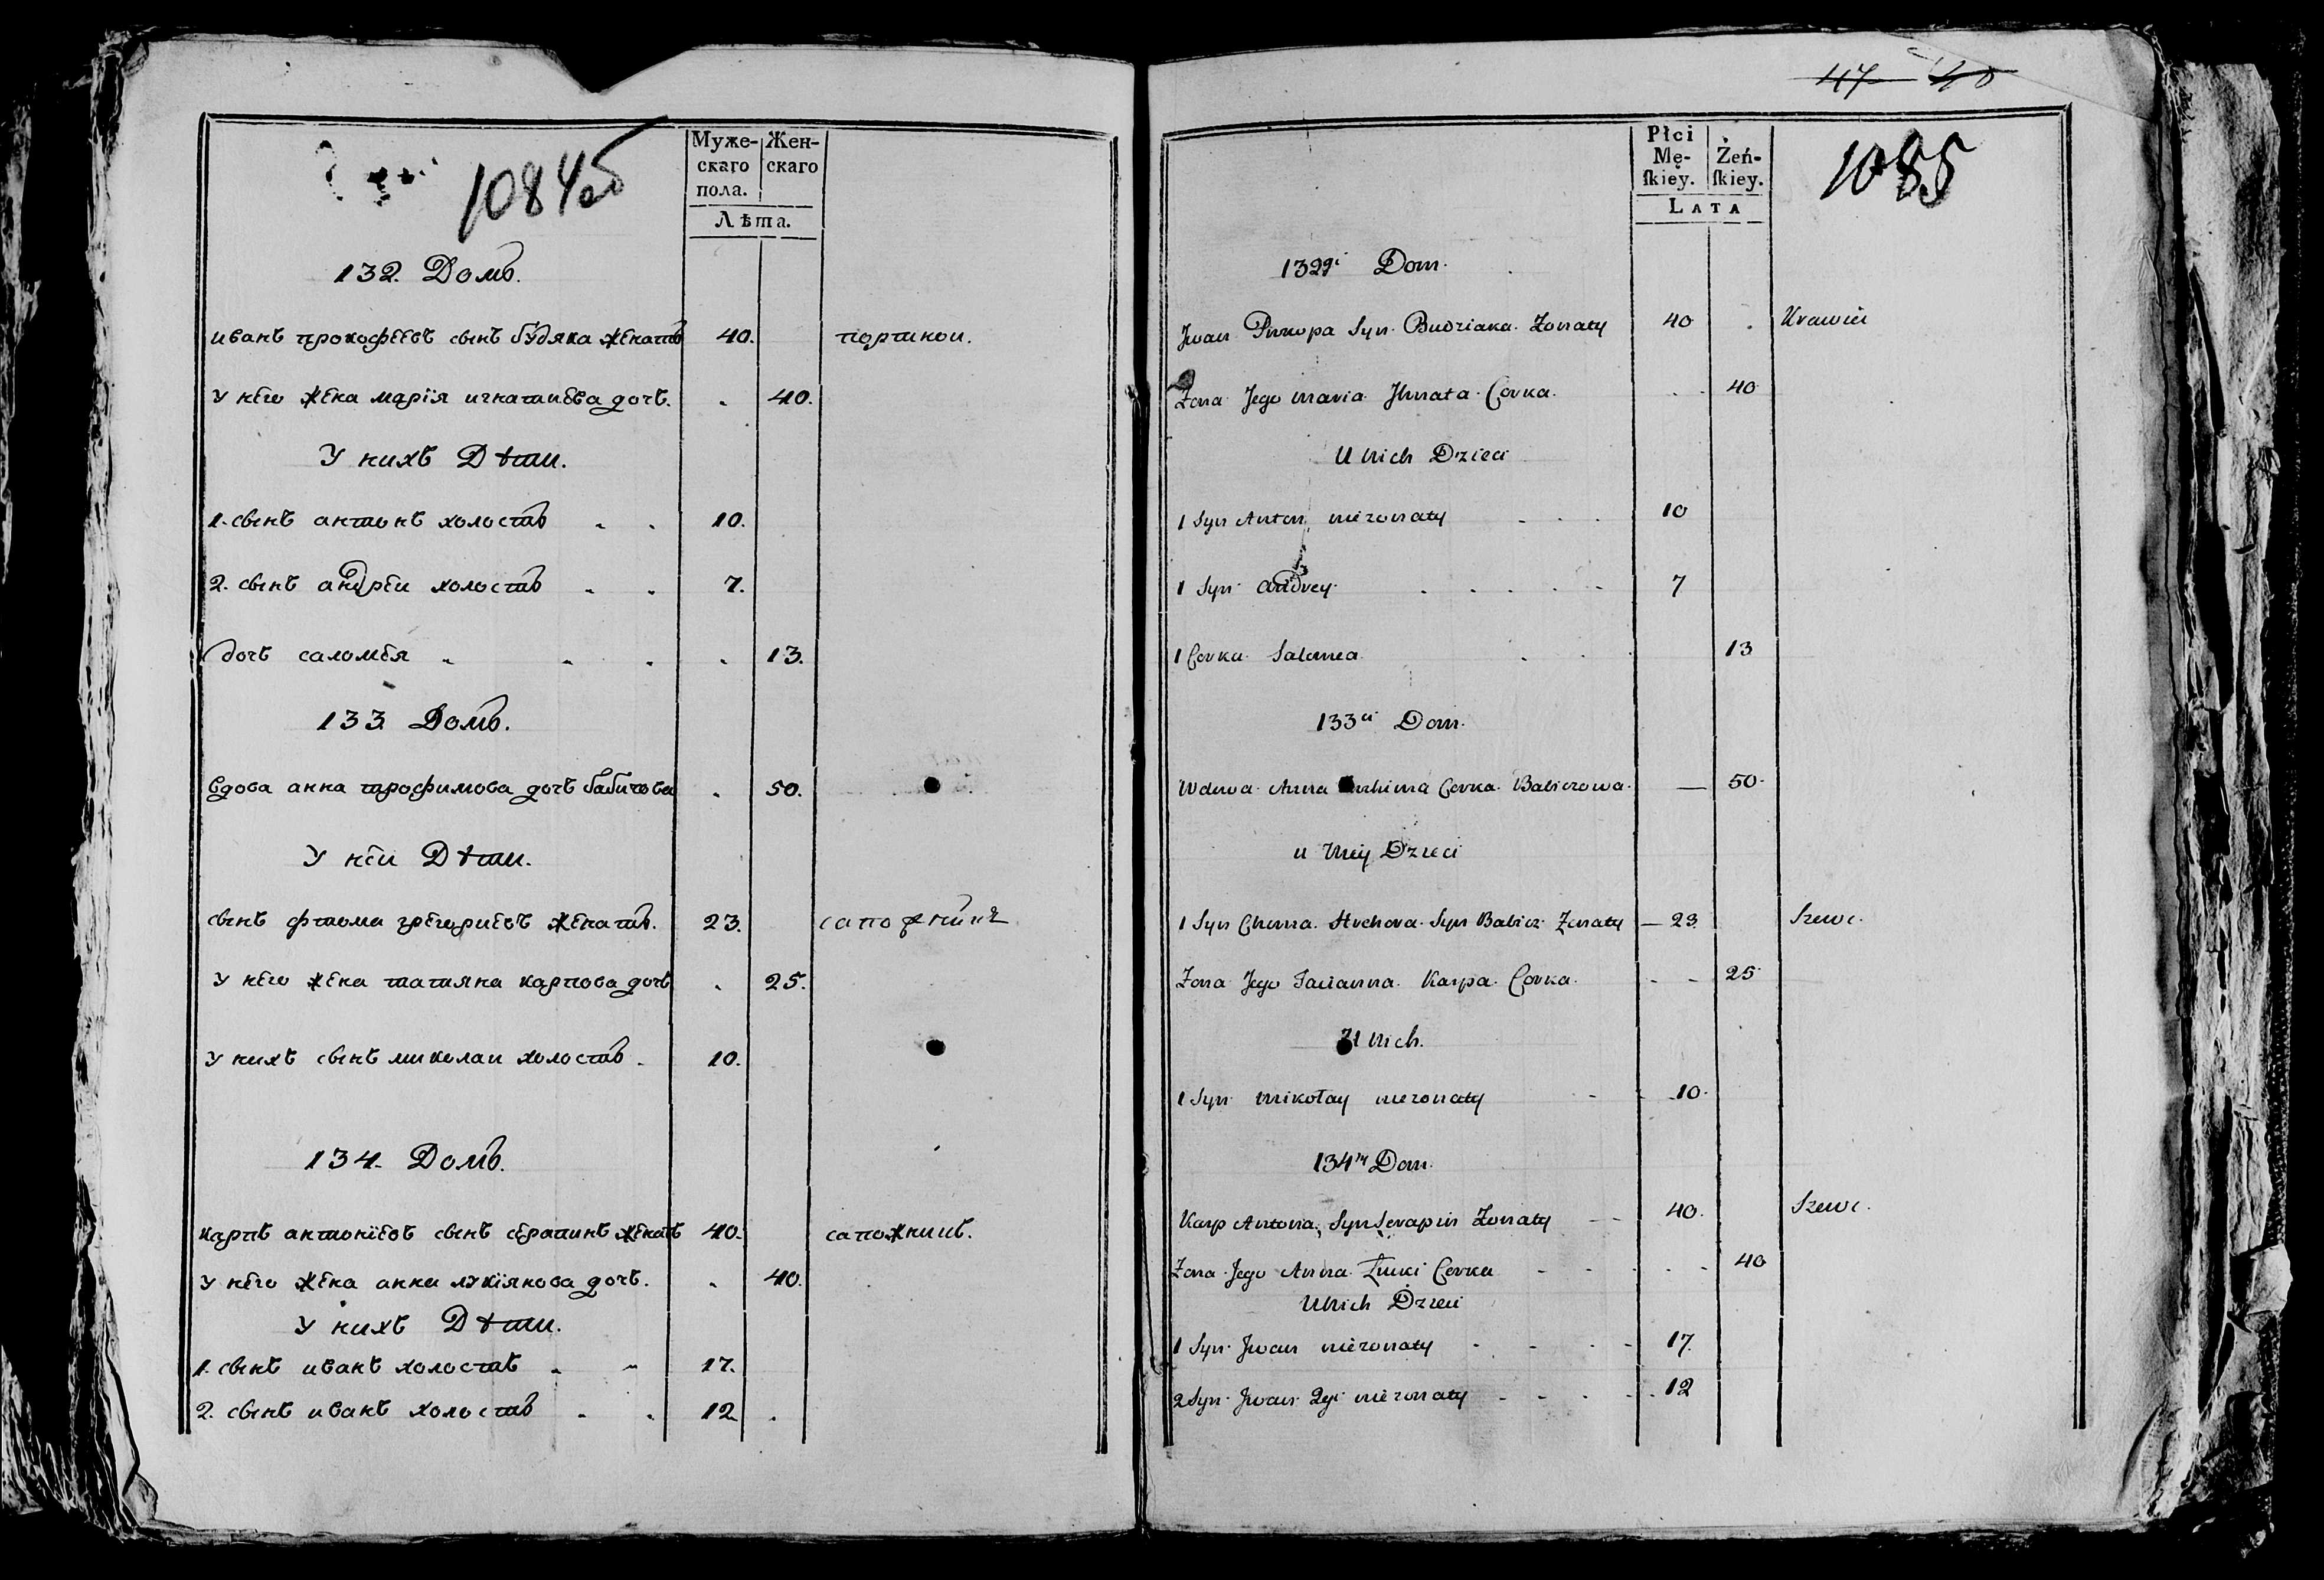 1084об
Муже-
скаго
пола.
Жен-
скаго
Лѣта.
132. Домъ.
иванъ прокофеевъ сынъ будяка женатъ 40. портнои.
У него жена марїя игнатиева дочь. 40.
У нихъ Дѣти.
1. сынъ антонъ холостъ 10.
2. сынъ андреи холостъ 7.
дочь саломея 13.
133 Домъ.
вдова анна трофимова дочь бабичова 50.
У неи Дѣти.
сынъ фтома григориевъ женатъ. 23. сапожникъ
У него жена татияна карпова дочь 25.
У нихъ сынъ миколаи холостъ 10.
134. Домъ.
карпъ антонїевъ сынъ серапинъ женатъ 40. сапожникъ.
У него жена анна лукїянова дочь. 40.
У нихъ Дѣти.
1. сынъ иванъ холостъ 17.
2. сынъ иванъ холостъ 12.
47 48
1085
Płci
Mę-
ſkiey.
Żeń-
ſkiey.
LATA
132gi Dom.
Jwan Prokopa Syn Budziaka Żonaty 40 Krawiec
Żona Jego maria Jhnata Corka. 40
U nich Dzieci
1 Syn Anton nieżonaty 10
1 Syn Andrey 7
1 Corka Salomea 13
133ci Dom.
Wdowa Anna Corka Babiczowa. 50
u niey Dzieci
1 Syn Choma Hrehora Syn Babicz Żonaty 23. Szewc.
Żona Jego Tacianna Karpa Corka. 25
U nich.
1 Syn mikołay nieżonaty 10.
134ty Dom.
Karp Antona Syn Serapin Żonaty 40. Szewc.
Żona Jego Anna Łuki Corka 40
U nich Dzieci
1 Syn Jwan nieżonaty 17.
2 Syn Jwan 2gi nieżonaty 12